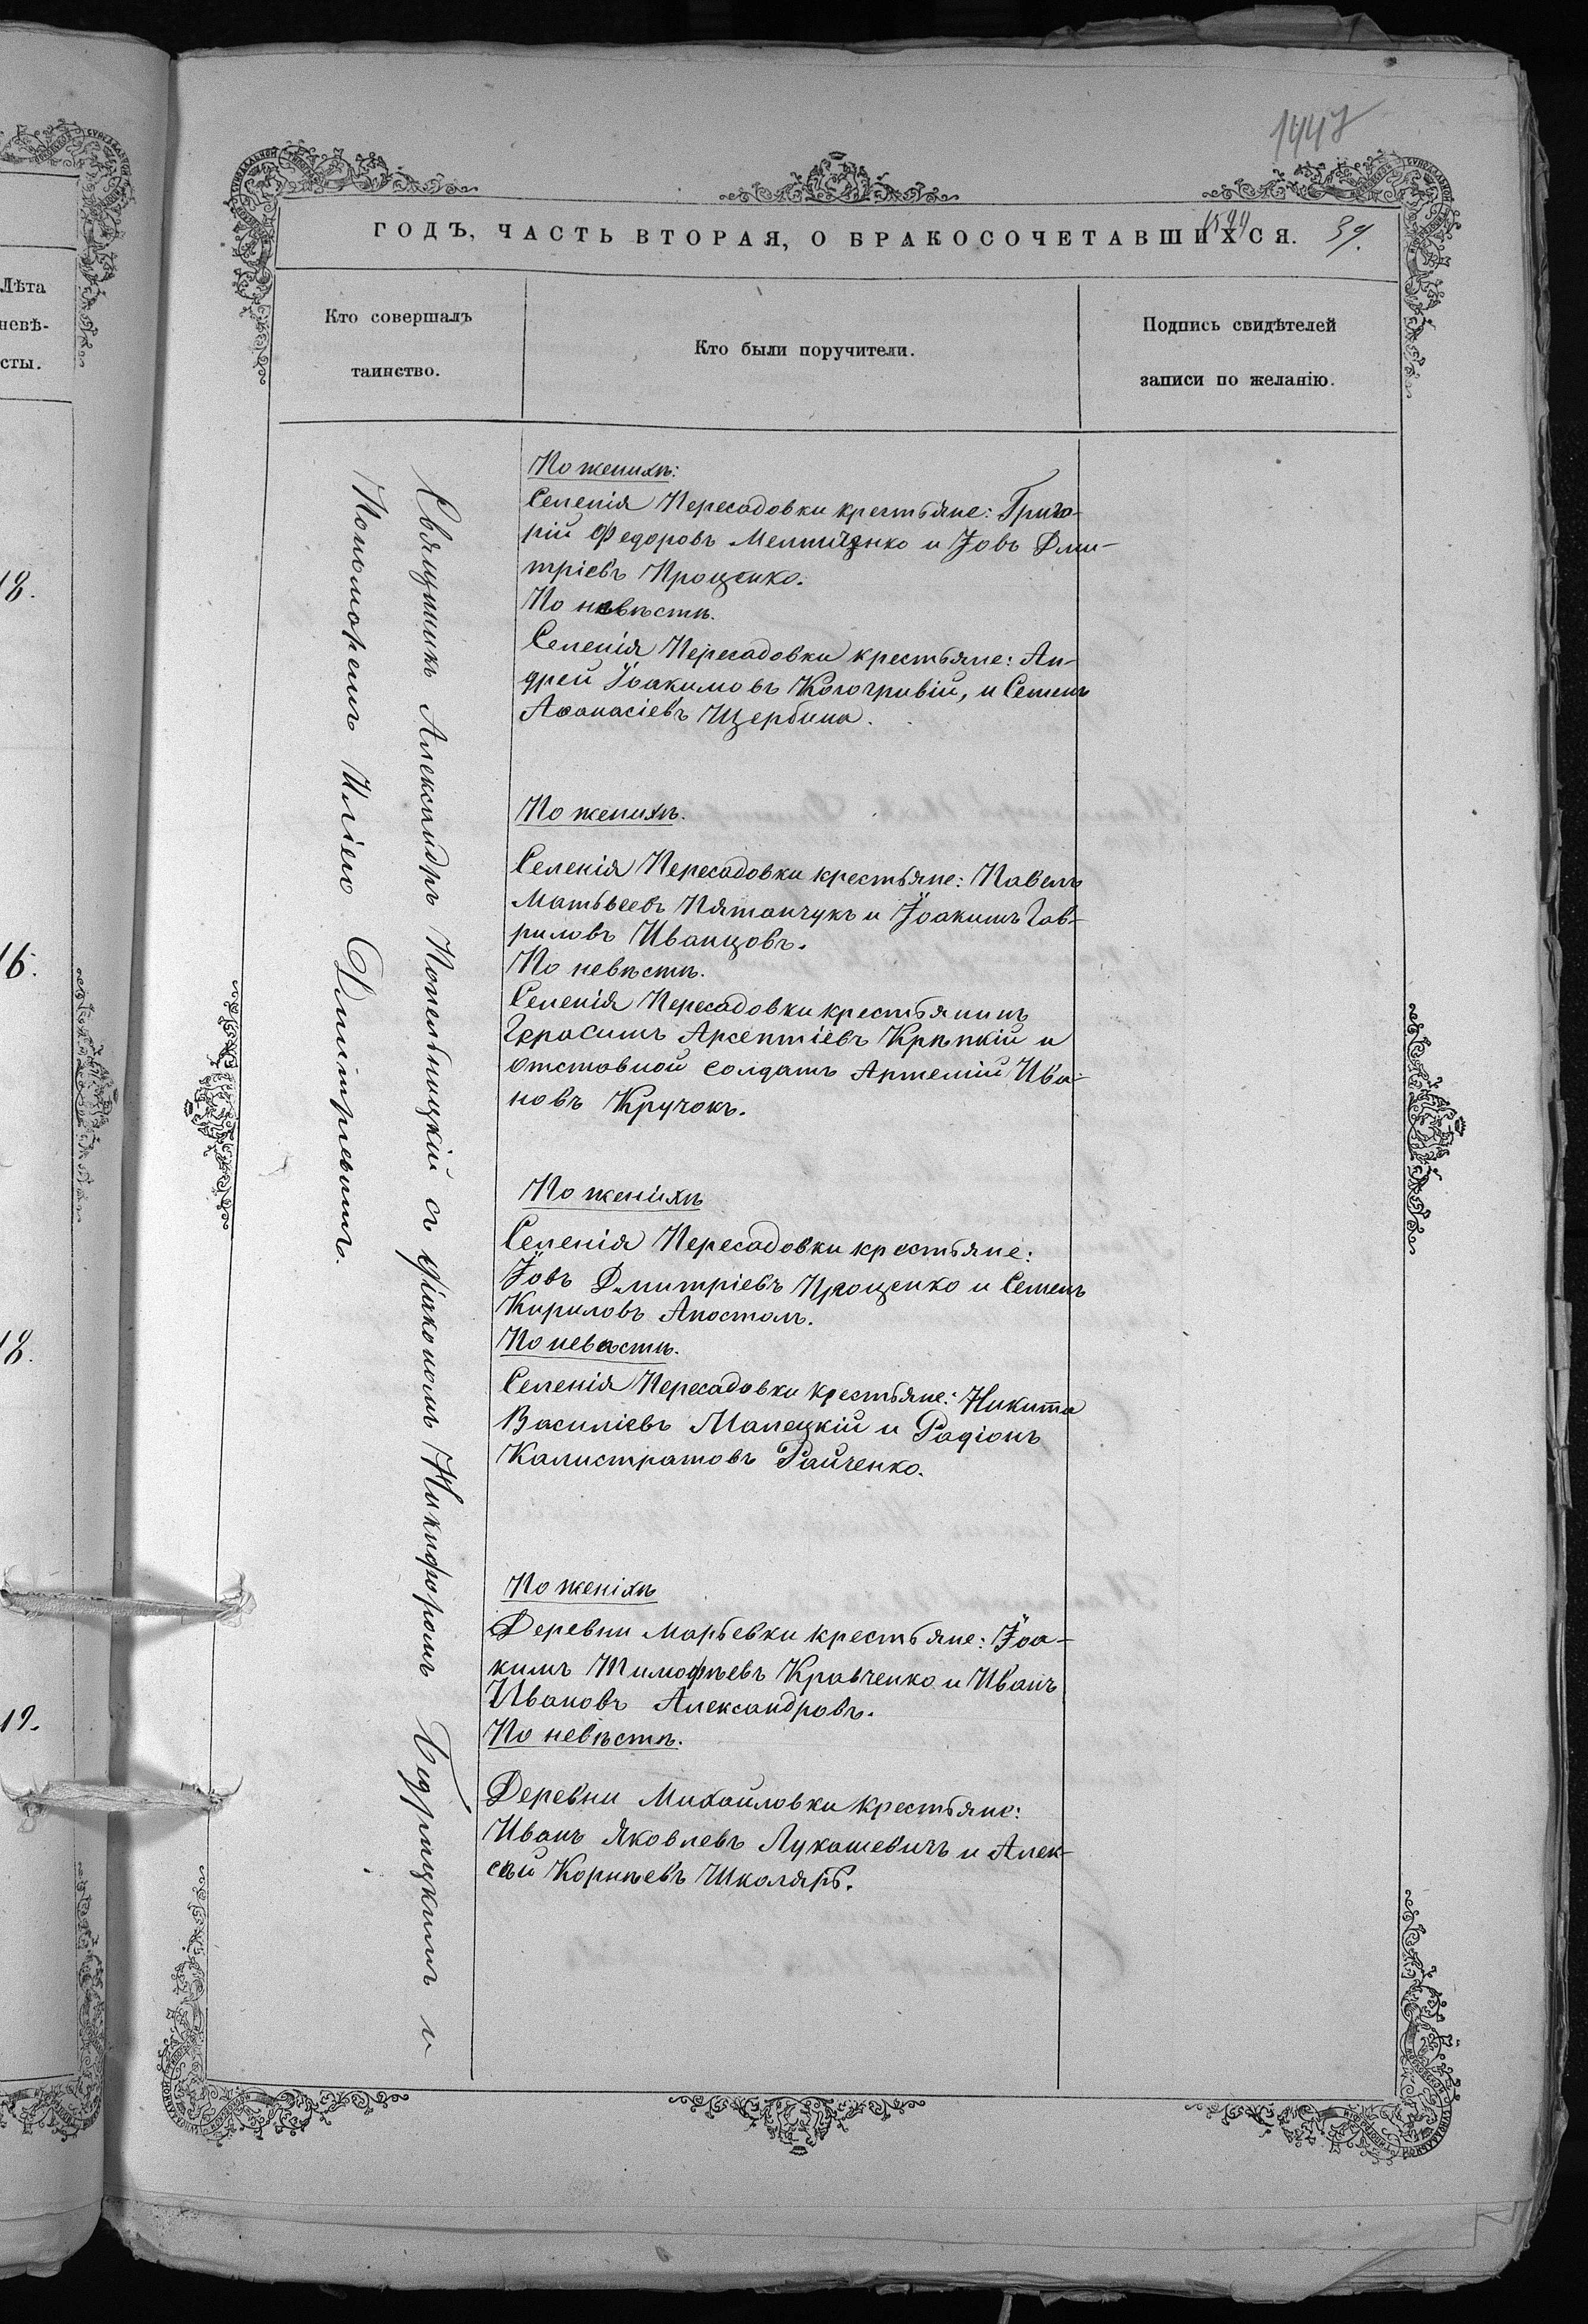 ГОДЪ, ЧАСТЬ ВТОРАЯ, О БРАКОСОЧЕТАВШИХСЯ. 39.
Лѣта
невѣ-
сты.
Кто совершалъ
таинство.
Кто были поручители.
Подпись свидѣтелей
записи по желанію.
18.
16.
18.
19.
Священникъ Александръ Попельницкій съ діакономъ Никифоромъ Бедрицкимъ и
Пономоремъ Иліею Димитріевымъ.
По женихѣ:
Селенія Пересадовки крестьяне: Григо-
рій Федоровъ и Іовъ Дми-
тріевъ Проценко.
По невѣстѣ.
Селенія Пересадовки крестьяне: Ан-
дрей Іоакимовъ Когогривій, и Семенъ
Аѳанасіевъ Щербина.
По женихѣ.
Селенія Пересадовки крестьяне: Павелъ
Матьвеевъ Пятанчукъ и Іоакимъ Гав-
риловъ Иванцовъ.
По невѣстѣ.
Селенія Пересадовки крестьянинъ
Герасимъ Арсентіевъ Крѣпкій и
отставной солдатъ Артемій Ива-
новъ Кручокъ.
По женихѣ
Селенія Пересадовки крестьяне:
Іовъ Дмитріевъ Проценко и Семенъ
Кириловъ Апостолъ.
По невѣстѣ.
Селенія Пересадовки крестьяне: Никита
Василіевъ Малецкій и Радіонъ
Калистратовъ Райченко.
По женіхѣ
Деревни Марьевки крестьяне: Іоа-
кимъ Тимофѣевъ Кравченко и Иванъ
Ивановъ Александровъ.
По невѣстѣ.
Деревни Михайловки крестьяне:
Иванъ Яковлевъ Лукашевичъ и Алек-
сѣй Корнѣевъ Школярь.